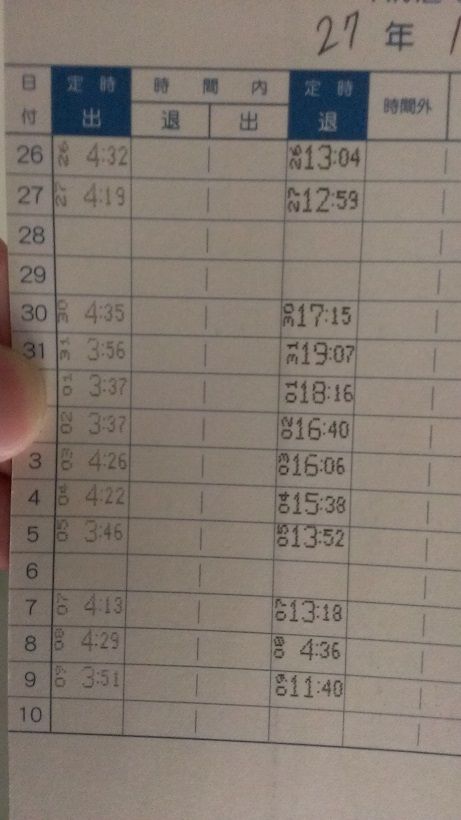 27年
日付 定時 出 時間内 退 出 定時 退 時間外
26 26 4:32 26 13:04
27 27 4:19 27 12:59
28
29
30 30 4:35 30 17:15
31 31 3:56 31 19:07
01 3:37 01 18:16
02 3:37 02 16:40
3 03 4:26 03 16:06
4 04 4:22 04 15:38
5 05 3:46 05 13:52
6
7 07 4:13 07 13:18
8 08 4:29 08 4:36
9 09 3:51 09 11:40
10